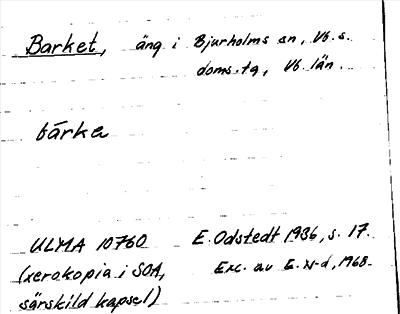 Barket, äng i Bjurholms sn, Vb. s.
doms. tg, Vb. län.
bárka
ULMA 10760 E. Odstedt 1936, s. 17.
(xerokopia i SOA, Exc. av E. N-d, 1968.
särskild kapsel)